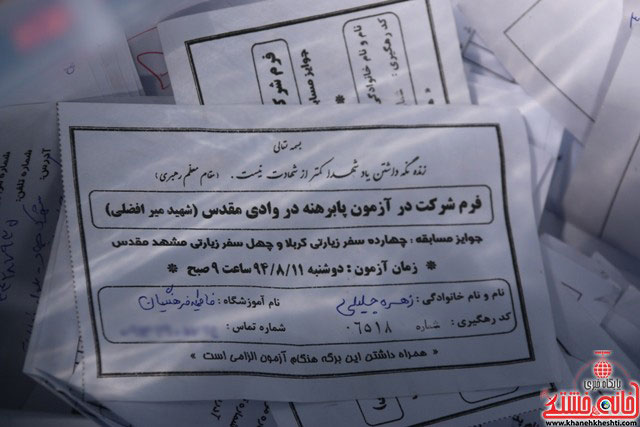 بسمه تعالی
زنده نگه داشتن یاد شهدا کمتر از شهادت نیست. (مقام معظم رهبری)
فرم شرکت در آزمون پابرهنه در وادی مقدس (شهید میر افضلی)
جوایز مسابقه: چهارده سفر زیارتی کربلا و چهل سفر زیارتی مشهد مقدس
* زمان آزمون: دوشنبه ۹۴/۸/۱۱ ساعت ۹ صبح *
نام و نام خانوادگی: زهره جلیلی نام آموزشگاه: فاطمه فرهنگیان
کد رهگیری: شماره ۰۶۵۱۸ شماره تماس:
« همراه داشتن این برگه هنگام آزمون الزامی است »
فرم شرک
جوایز مسابقه
نام و نام خانوادگی
کد رهگیری: شماره
پایگاه خبری
خانه خشتی
www.khanehkheshti.com